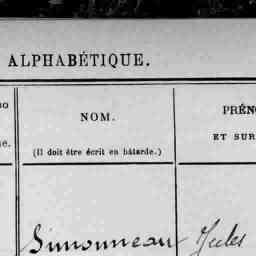 ALPHABÉTIQUE.
NOM.
(Il doit être écrit en bâtarde.)
PRÉNO
ET SUR
Simonneau Jules